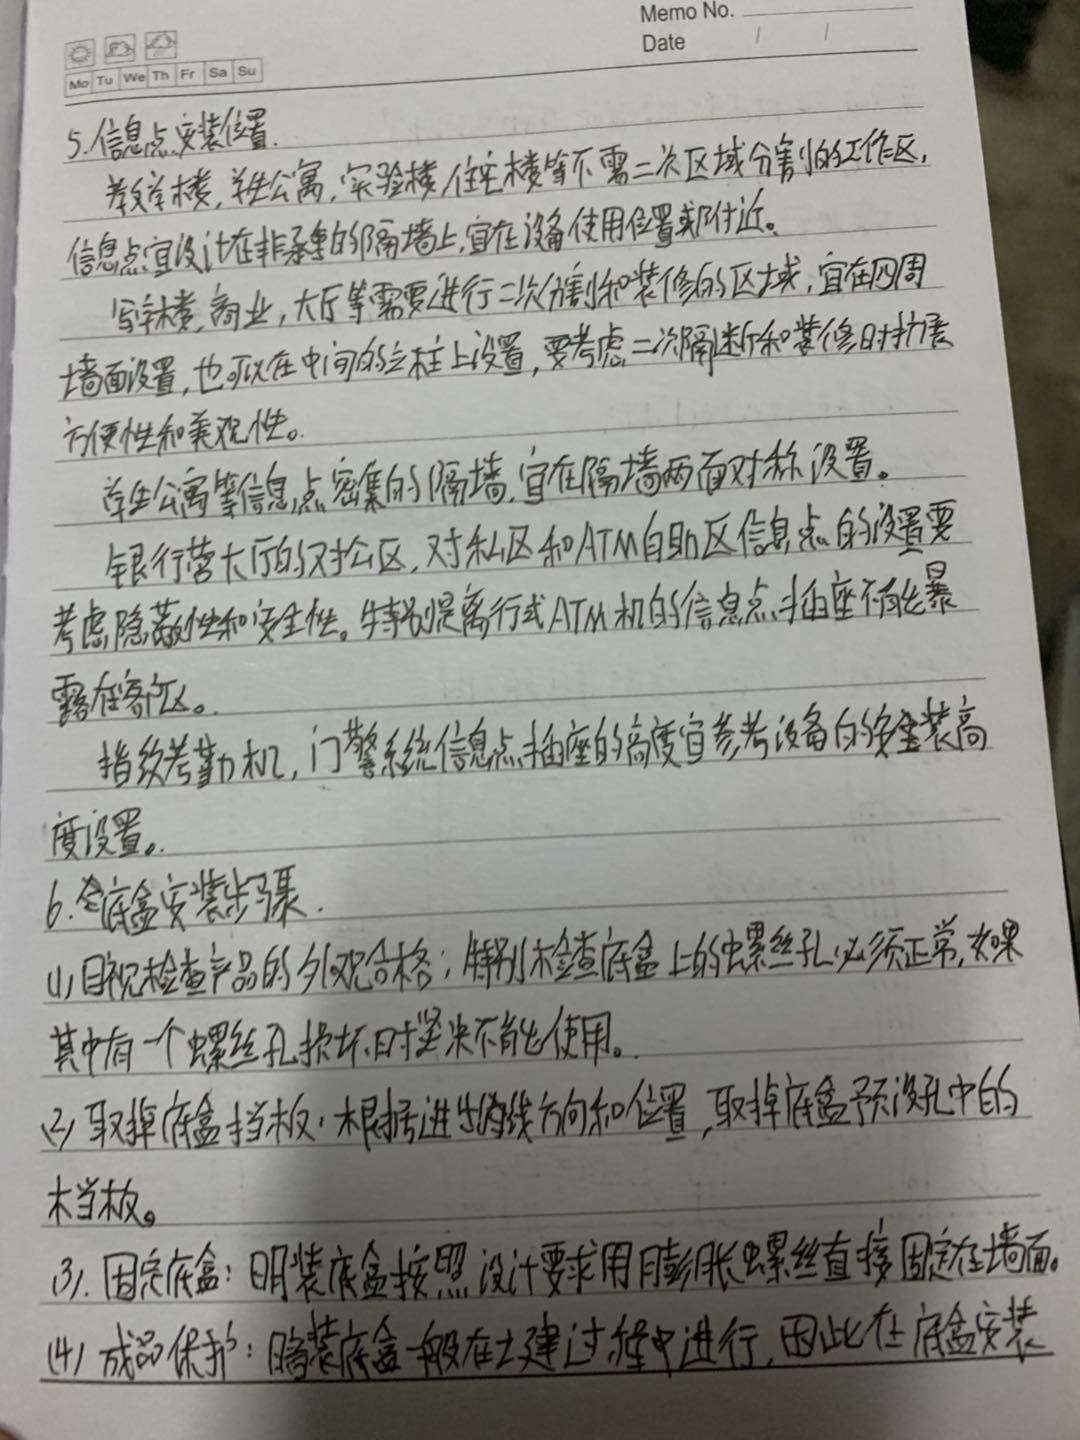 Memo No.
Date / /
Mo Tu We Th Fr Sa Su
5.信息点安装位置.
教学楼,学生公寓,实验楼,住宅楼等不需二次区域分割的工作区,
信息点宜设计在非承重的隔墙上,宜在设备使用位置或附近。
写字楼,商业,大厅等需要进行二次分割和装修的区域,宜在四周
墙面设置,也可以在中间的立柱上设置,要考虑二次隔断和装修时扩展
方便性和美观性。
学生公寓等信息点密集的隔墙,宜在隔墙两面对称设置。
银行营大厅的对公区,对私区和ATM自助区信息点的设置要
考虑隐蔽性和安全性。特别是离行式ATM机的信息点插座不能暴
露在客户区。
指纹考勤机,门警系统信息点插座的高度宜参考设备的安装高
度设置。
6.底盒安装步骤.
(1)目视检查产品的外观合格;特别检查底盒上的螺丝孔必须正常,如果
其中有一个螺丝孔损坏时坚决不能使用。
(2)取掉底盒挡板.根据进出线方向和位置,取掉底盒预设孔中的
挡板。
(3).固定底盒:明装底盒按照设计要求用膨胀螺丝直接固定在墙面。
(4)成品保护:暗装底盒一般在土建过程中进行,因此在底盒安装